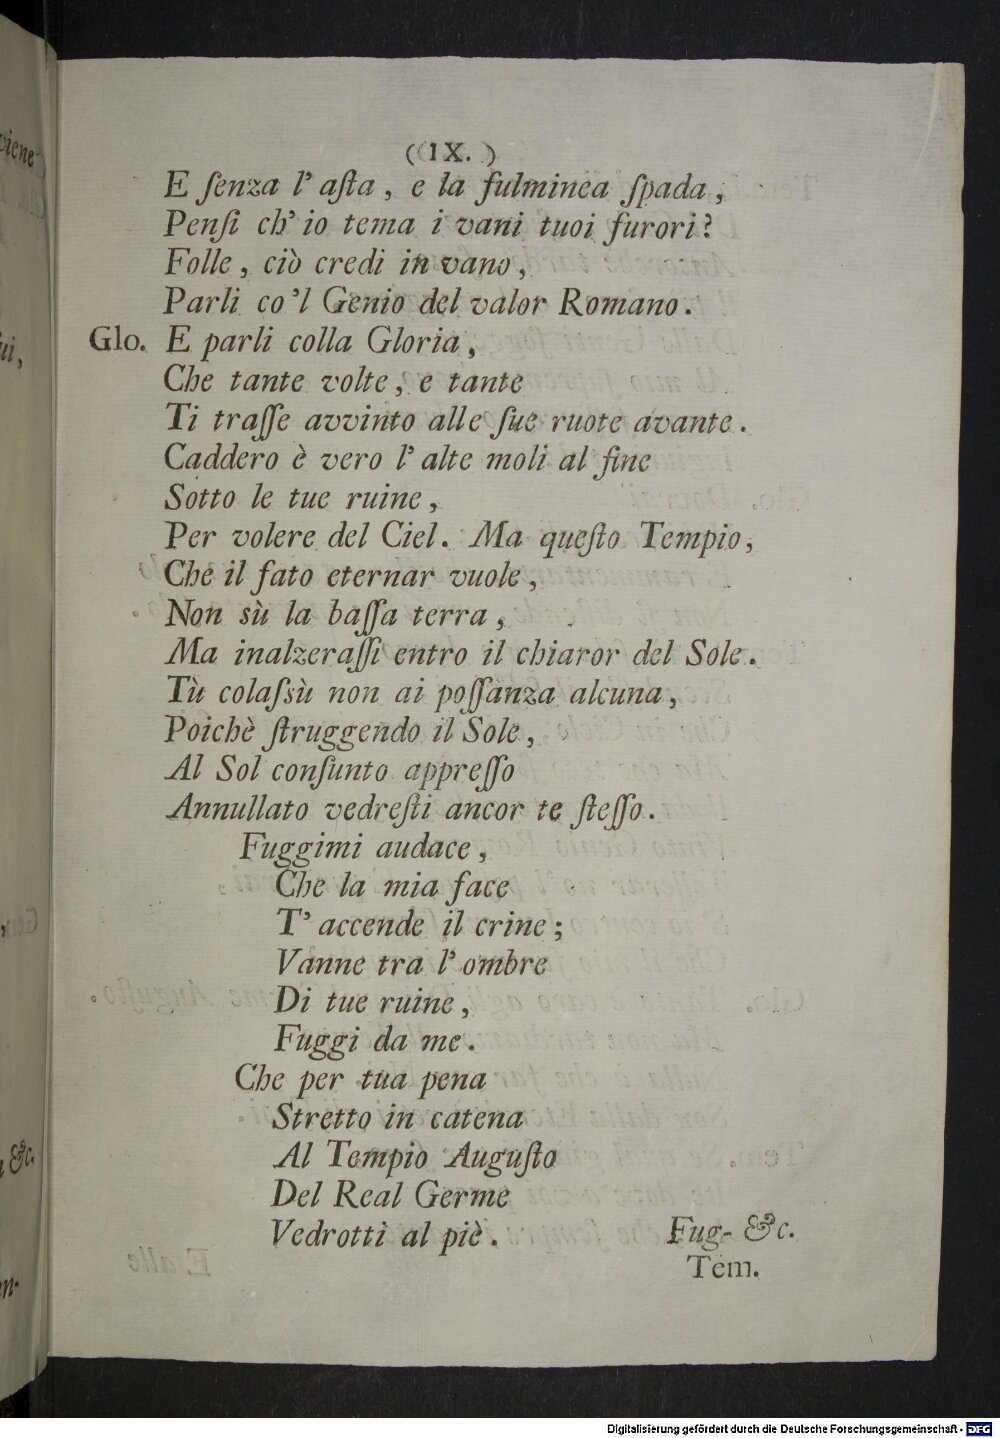 (IX.)
E ſenza l' aſta, e la fulminea ſpada,
Penſi ch' io tema i vani tuoi furori?
Folle, ciò credi in vano,
Parli co'l Genio del valor Romano.
Glo. E parli colla Gloria,
Che tante volte, e tante
Ti traſſe avvinto alle ſue ruote avante.
Caddero è vero l' alte moli al fine
Sotto le tue ruine,
Per volere del Ciel. Ma queſto Tempio,
Che il fato eternar vuole,
Non sù la baſſa terra,
Ma inalzeraſſi entro il chiaror del Sole.
Tù colaſsù non ai poſſanza alcuna,
Poichè ſtruggendo il Sole,
Al Sol conſunto appreſſo
Annullato vedreſti ancor te ſteſſo.
Fuggimi audace,
Che la mia face
T' accende il crine;
Vanne tra l' ombre
Di tue ruine,
Fuggi da me.
Che per tua pena
Stretto in catena
Al Tempio Auguſto
Del Real Germe
Vedrotti al piè. Fug- &c.
Tem.
Digitalisierung gefördert durch die Deutsche Forschungsgemeinschaft - DFG